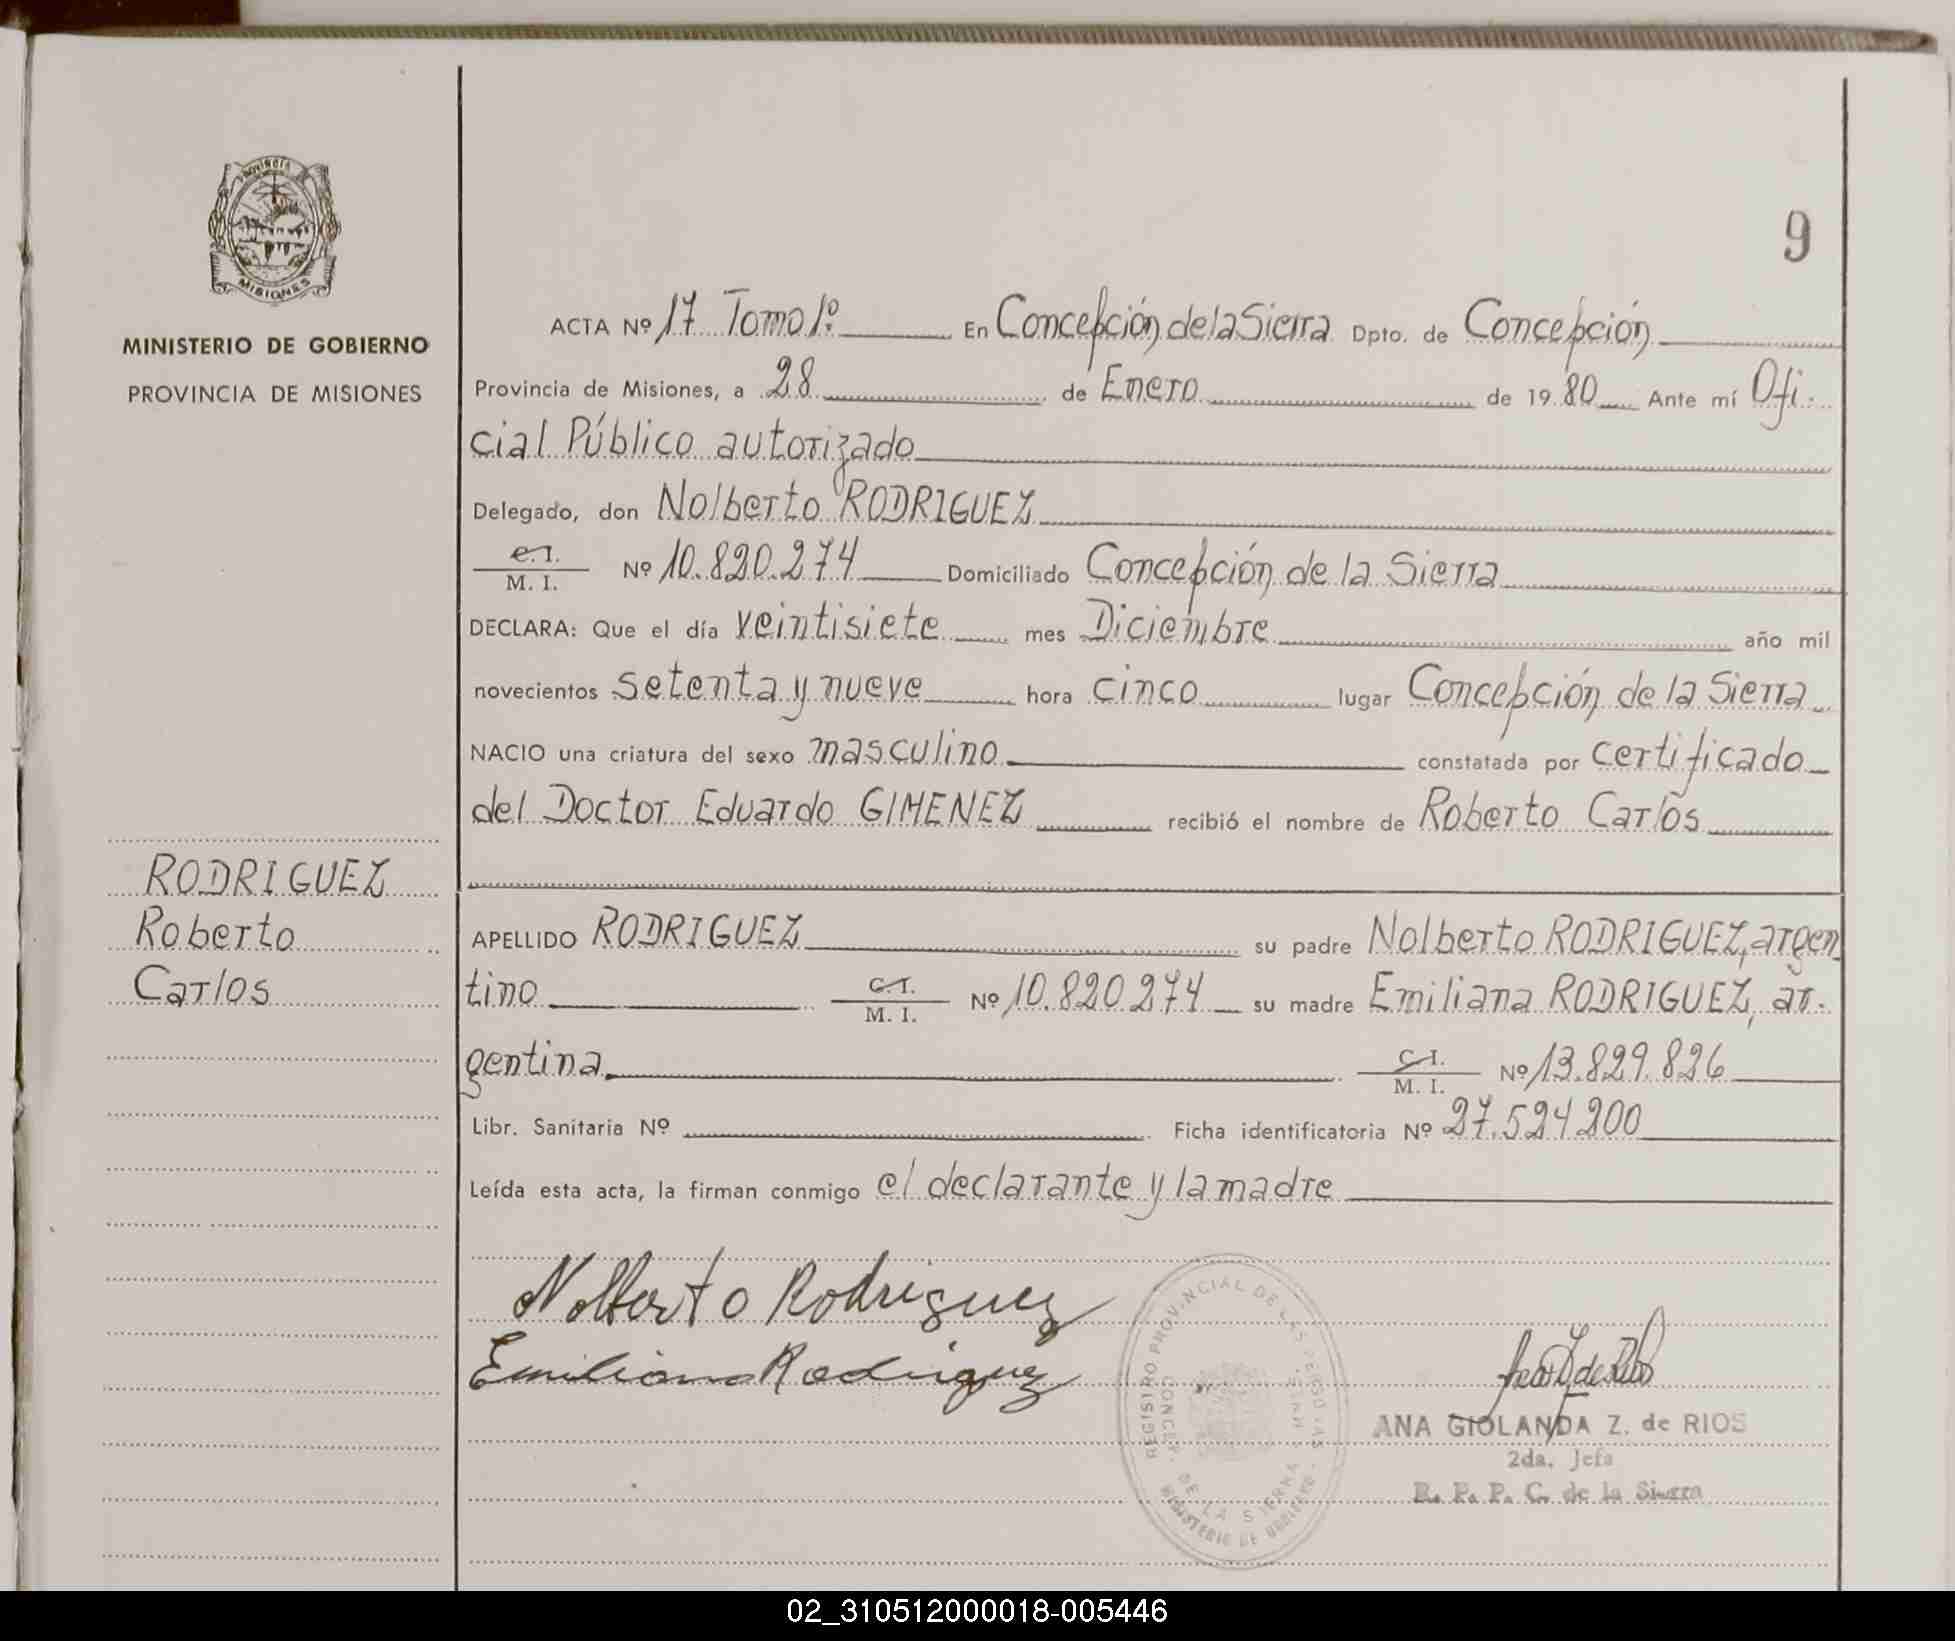 PROVINCIA
MISIONES
MINISTERIO DE GOBIERNO
PROVINCIA DE MISIONES
9
ACTA Nº 17 Tomo 1º En Concepción de la Sierra Dpto. de Concepción
Provincia de Misiones, a 28 de Enero de 1980 Ante mí Ofi-
cial Público autorizado
Delegado, don Nolberto RODRIGUEZ
C.I.
M. I. Nº 10.820.274 Domiciliado Concepción de la Sierra
DECLARA: Que el día veintisiete mes Diciembre año mil
novecientos setenta y nueve hora cinco lugar Concepción de la Sierra
NACIO una criatura del sexo masculino constatada por certificado
del Doctor Eduardo GIMENEZ recibió el nombre de Roberto Carlos
RODRIGUEZ
Roberto
Carlos
APELLIDO RODRIGUEZ su padre Nolberto RODRIGUEZ, argen
tino C.I.
M. I. Nº 10.820.274 su madre Emiliana RODRIGUEZ, ar-
gentina C.I.
M. I. Nº 13.829.826
Libr. Sanitaria Nº Ficha identificatoria Nº 27.524.200
Leída esta acta, la firman conmigo el declarante y la madre
Nolberto Rodriguez
Emiliana Rodriguez
REGISTRO PROVINCIAL DE LAS PERSONAS
CONCEP. DE LA SIERRA
MINISTERIO DE GOBIERNO
ANA GIOLANDA Z. de RIOS
2da. Jefa
R. P. P. C. de la Sierra
02_310512000018-005446